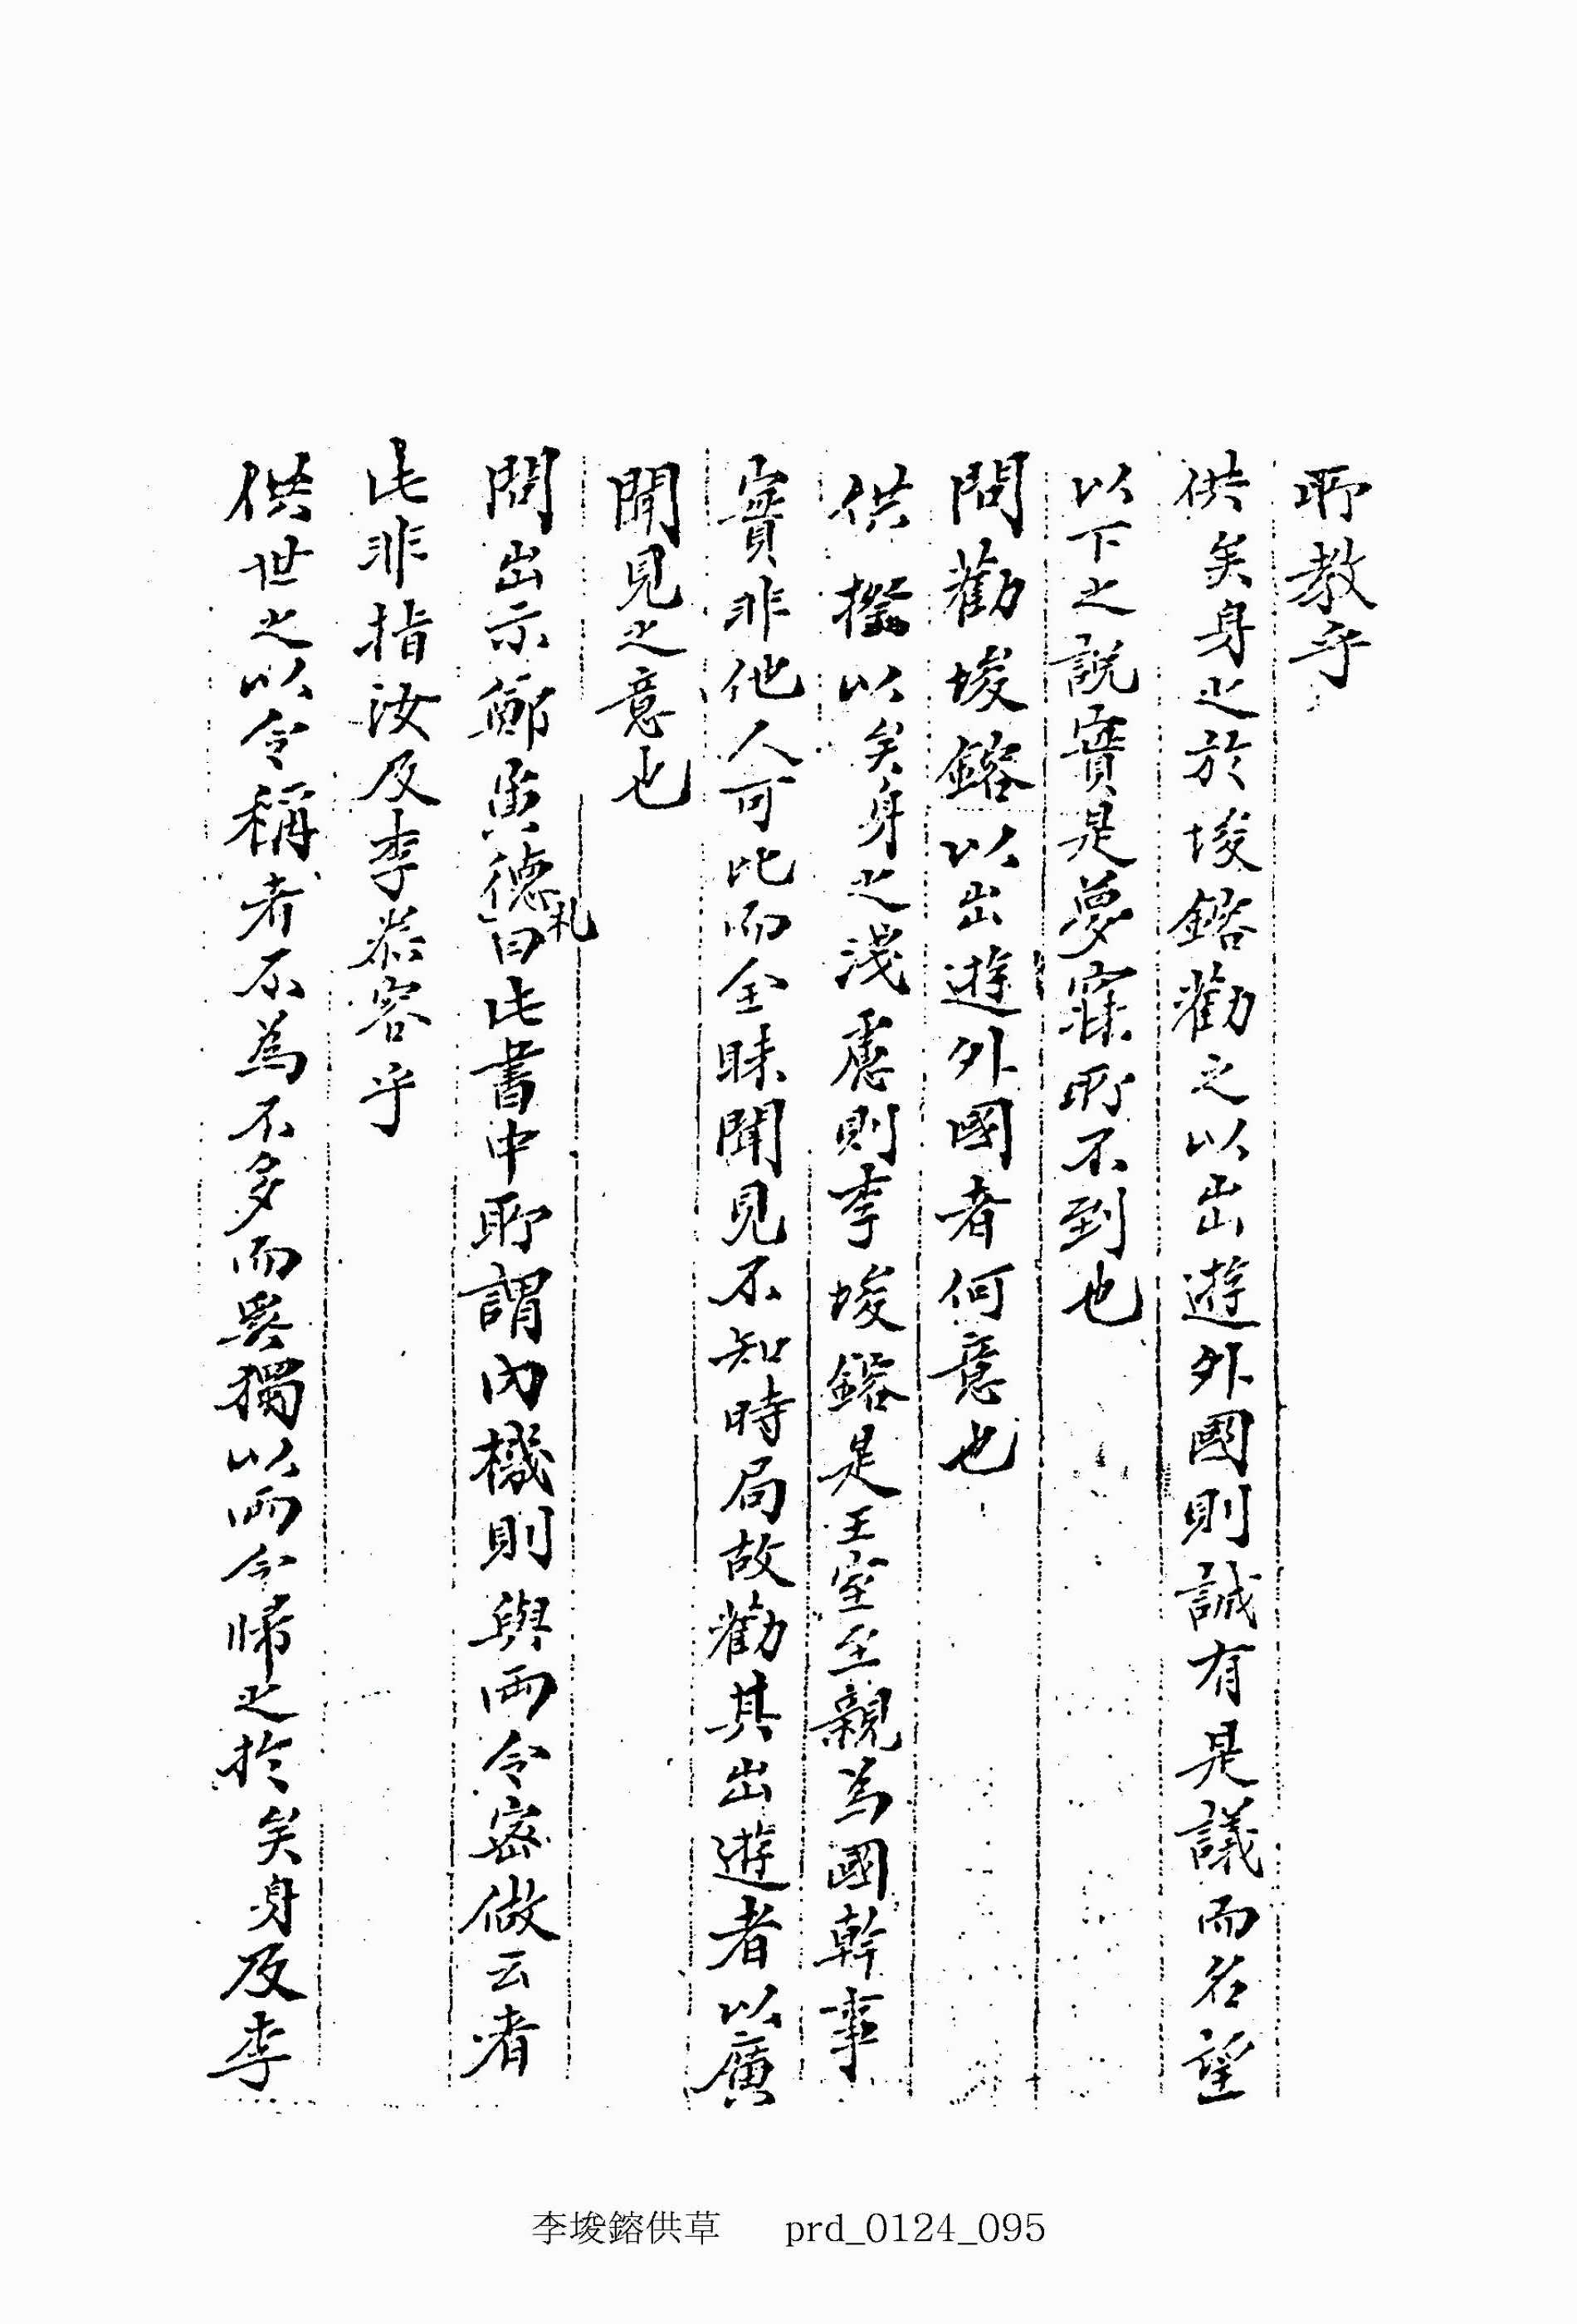 所教乎
供矣身之於埈鎔勸之以出遊外國則誠有是議而名望
以下之說實是夢寐所不到也
問勸埈鎔以出遊外國者何意也
供揆以矣身之淺慮則李埈鎔是王室至親為國幹事
實非他人可比而全昧聞見不知時局故勸其出遊者以廣
聞見之意也
問出示鄭寅德札曰此書中所謂內機則與両令密做云者
此非指汝及李容乎
供世之以令稱者不為不多而奚獨以両令歸之於矣身及李
李埈鎔供草 prd_0124_095